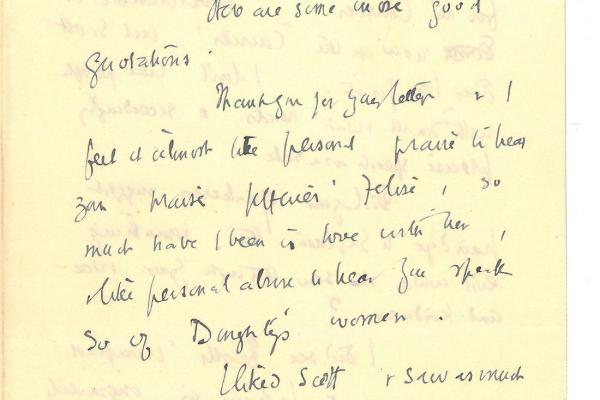 are some more good
quotations.
Thank you for your letter & I
feel it almost like personal praise to hear
you praise Jefferies' Felise, so
much have I been in love with her,
& like personal abuse to hear you speak
so of Doughty's women.
I liked Scott & saw as much